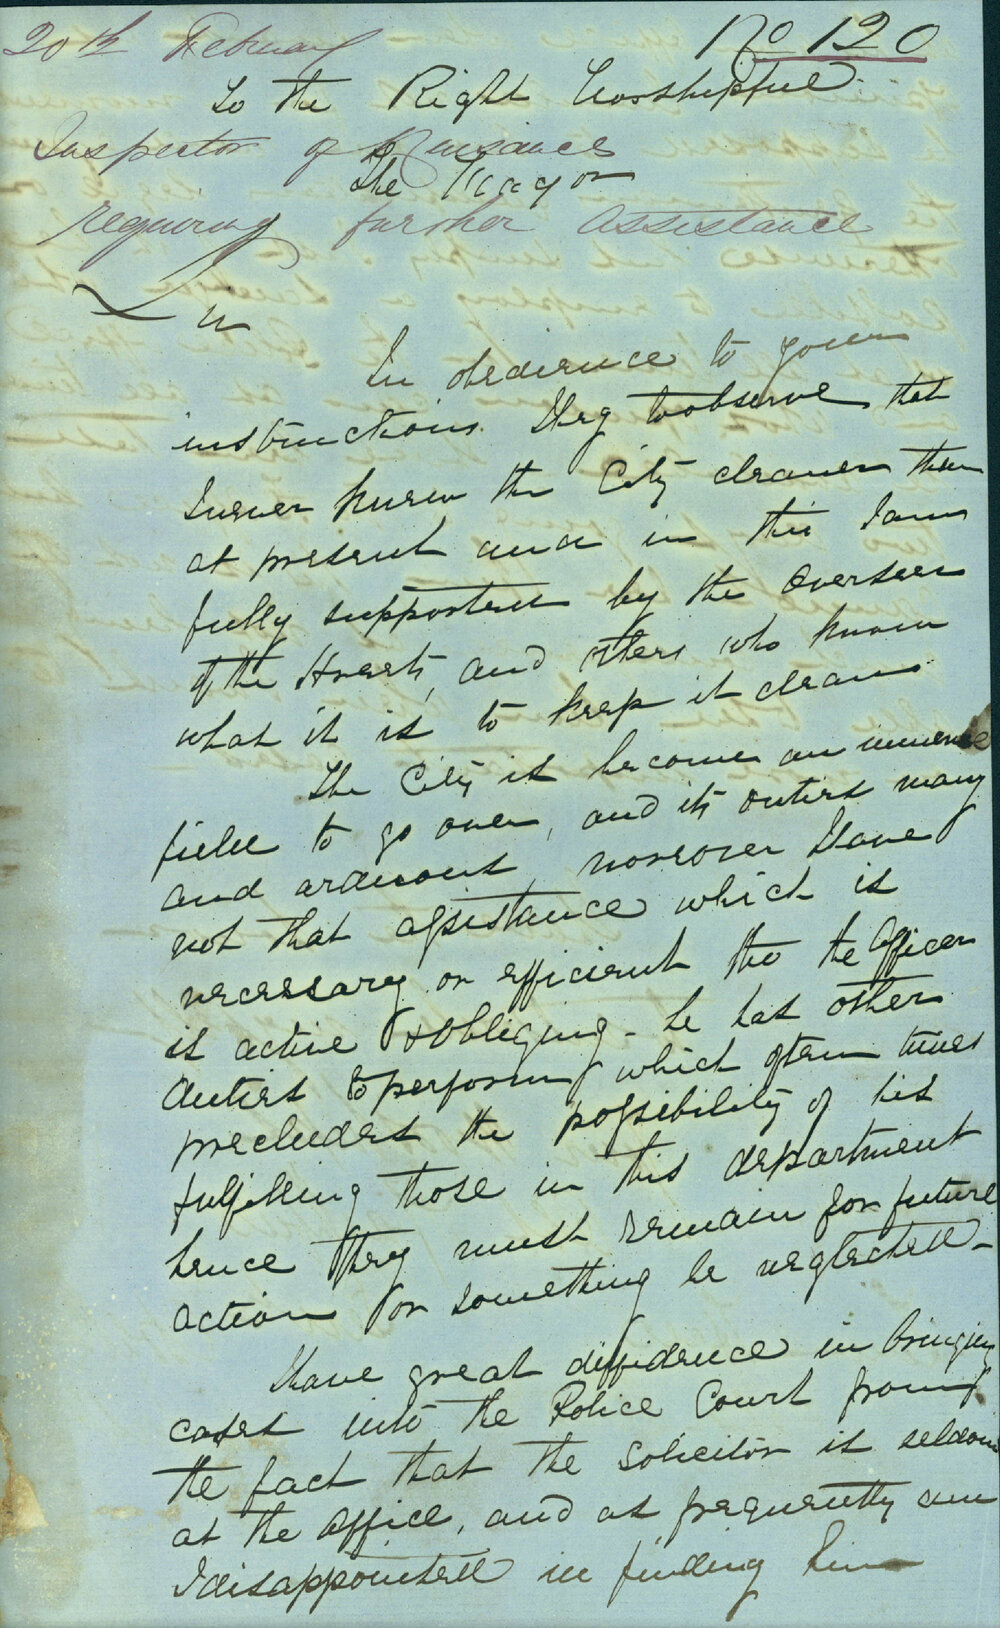 20th February
No 120
To the Right Worshipful
Inspector of Nuisances
The Mayor
requiring further assistance
Sir
In obedience to your
instructions I beg to observe that
I never knew the City cleaner than
at present and in this I am
fully supported by the Overseer
of the Streets, and others who know
what it is to keep it clean
The City is become an immense
field to go over, and its duties many
and arduous, moreover I have
not that assistance which is
necessary or efficient tho the Officer
is active & Obliging - he has other
duties to perform which often times
precludes the possibility of his
fulfilling those in this department
hence they must remain for future
action or something be neglected -
I have great diffidence in bringing
cases into the Police Court from
the fact that the Solicitor is seldom
at the Office, and as frequently am
I disappointed in finding him